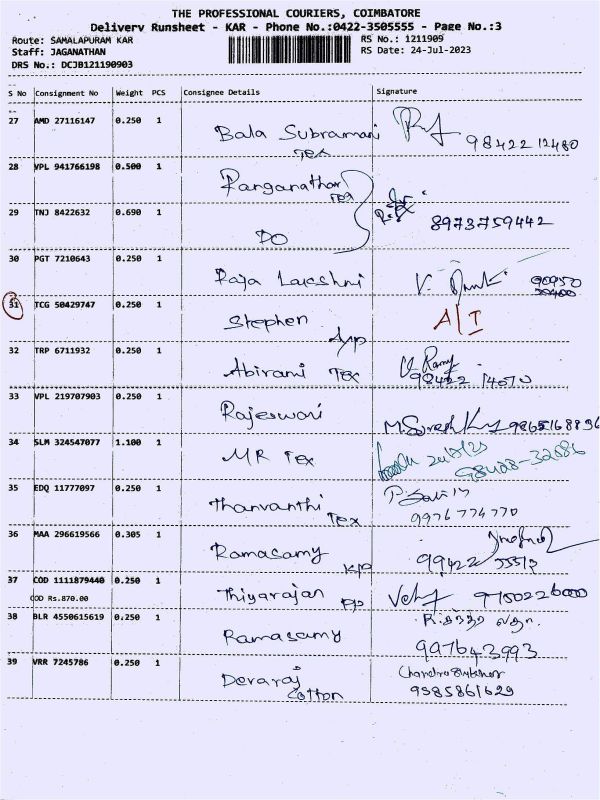 THE PROFESSIONAL COURIERS, COIMBATORE
Delivery Runsheet - KAR - Phone No.:0422-3505555 - Page No.:3
Route: SAMALAPURAM KAR RS No.: 1211909
Staff: JAGANATHAN RS Date: 24-Jul-2023
DRS No.: DCJB121190903
S No Consignment No Weight PCS Consignee Details Signature
27 AMD 27116147 0.250 1 Bala Subramani Tex 98422 12480
28 VPL 941766198 0.500 1 Ranganathan Tex
29 TNJ 8422632 0.690 1 DO 8973759442
30 PGT 7210643 0.250 1 Raja Lakshmi V.
31 TCG 50429747 0.250 1 Stephen A/P A/I
32 TRP 6711932 0.250 1 Abirami Tex 98422 14070
33 VPL 219707903 0.250 1 Rajeswari M. Suresh Kumar 9865168896
34 SLM 324547077 1.100 1 MR Tex 98428-32686
35 EDQ 11777097 0.250 1 Thanvanthi Tex 9976774770
36 MAA 296619566 0.305 1 Ramasamy K/P 99422
37 COD 1111879440 0.250 1 Thiyarajan P/P 9750226000
COD Rs.870.00
38 BLR 4550615619 0.250 1 Ramasamy 997643993
39 VRR 7245786 0.250 1 Devaraj Cotton 9585861629